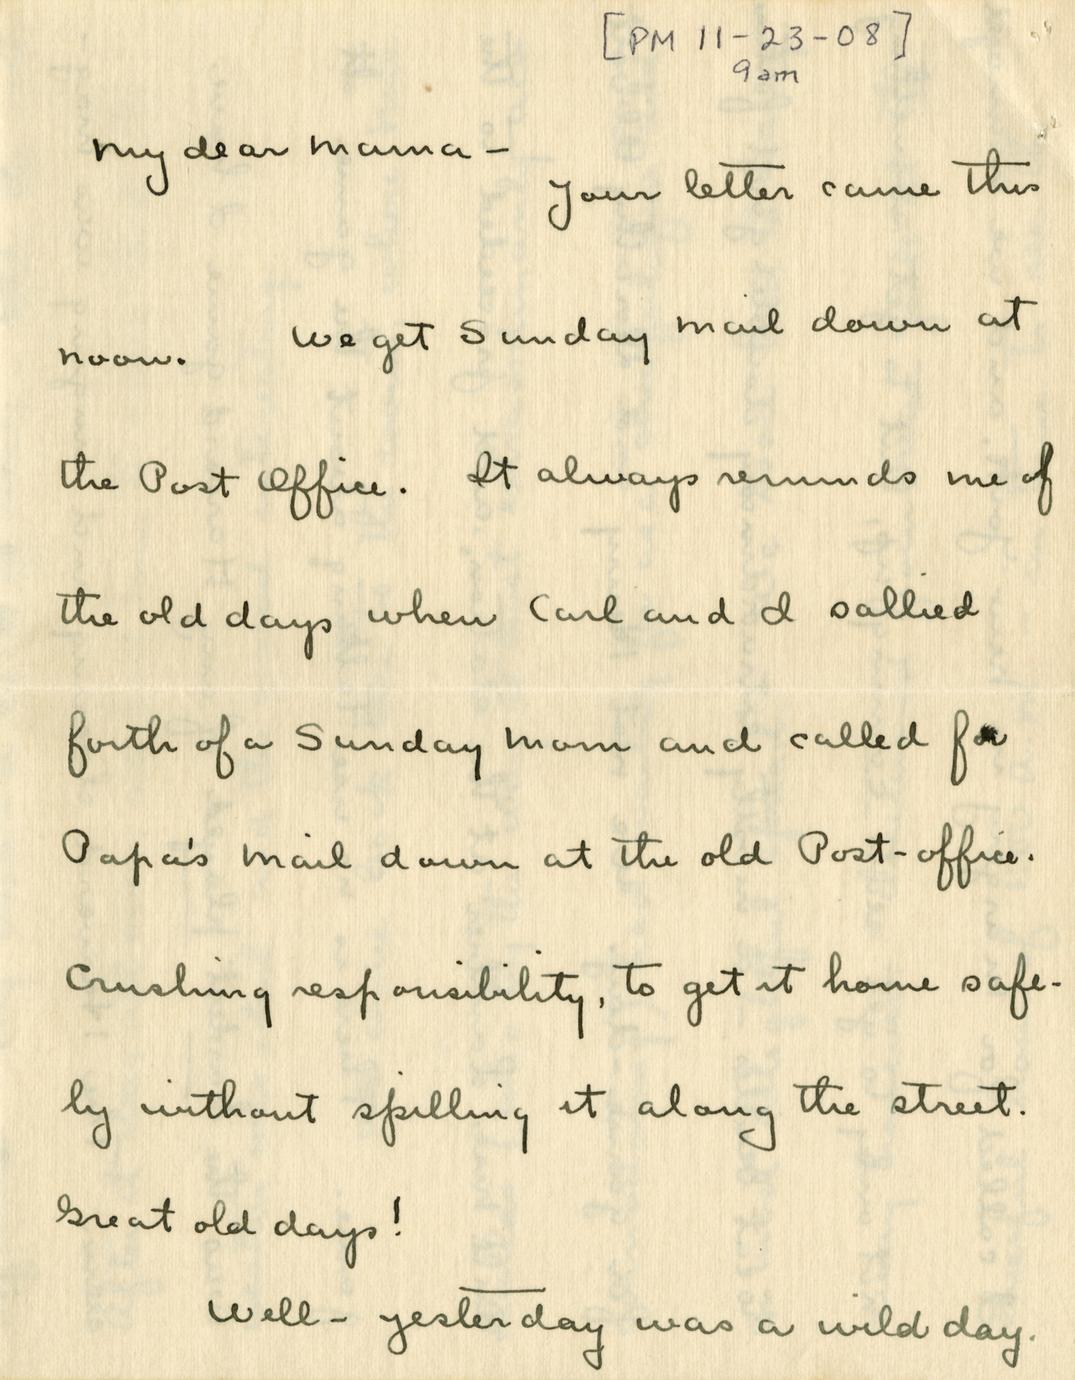 [PM 11-23-08]
9am
My dear Mama -
Your letter came this
noon. We get Sunday mail down at
the Post Office. It always reminds me of
the old days when Carl and I sallied
forth of a Sunday morn and called for
Papa's mail down at the old Post-office.
Crushing responsibility, to get it home safe-
ly without spilling it along the street.
Great old days!
Well - yesterday was a wild day.